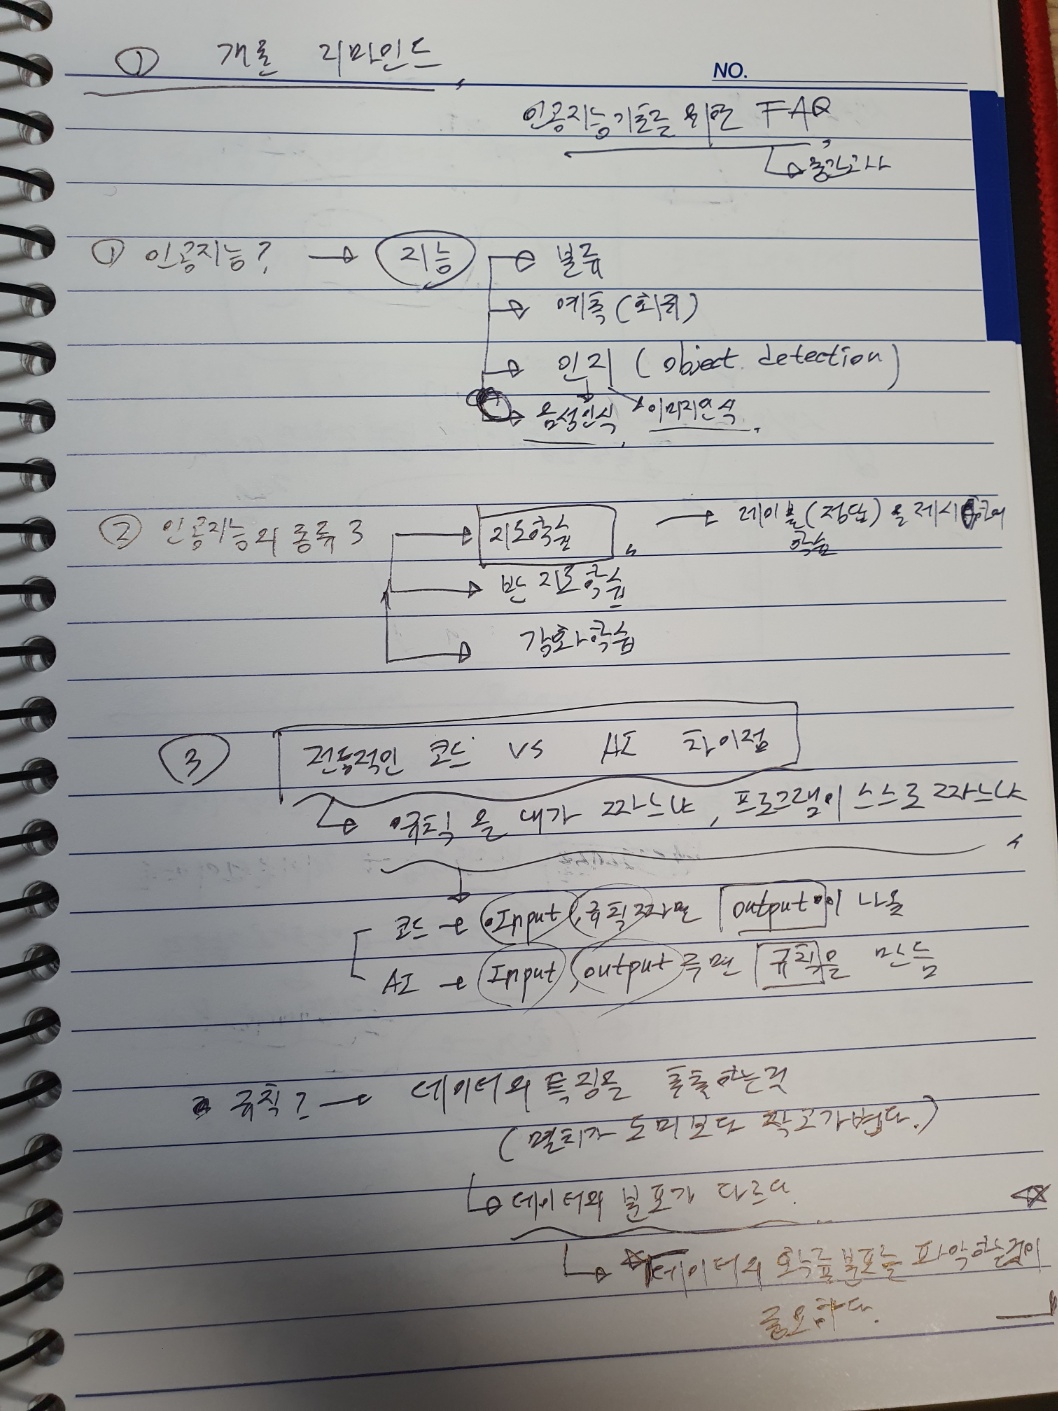 ① 개론 리마인드
NO.
인공지능기초를 위한 FAQ
중간고사
① 인공지능? → 지능 → 분류
→ 예측(회귀)
→ 인지 (object detection)
→ 음성인식 이미지인식
② 인공지능의 종류 3 → 지도학습 → 레이블(정답)을 제시하여
학습
→ 반지도학습
→ 강화학습
③ 전통적인 코드 vs AI 차이점
→ 규칙을 내가 짜느냐, 프로그램이 스스로 짜느냐
코드 → Input, 규칙 짜면 output이 나옴
AI → Input, output 주면 규칙을 만듬
규칙? → 데이터의 특징을 추출하는것
(멸치가 도미보다 작고가볍다.)
→ 데이터의 분포가 다르다.
→ 데이터의 확률분포를 파악하는것이
중요하다.